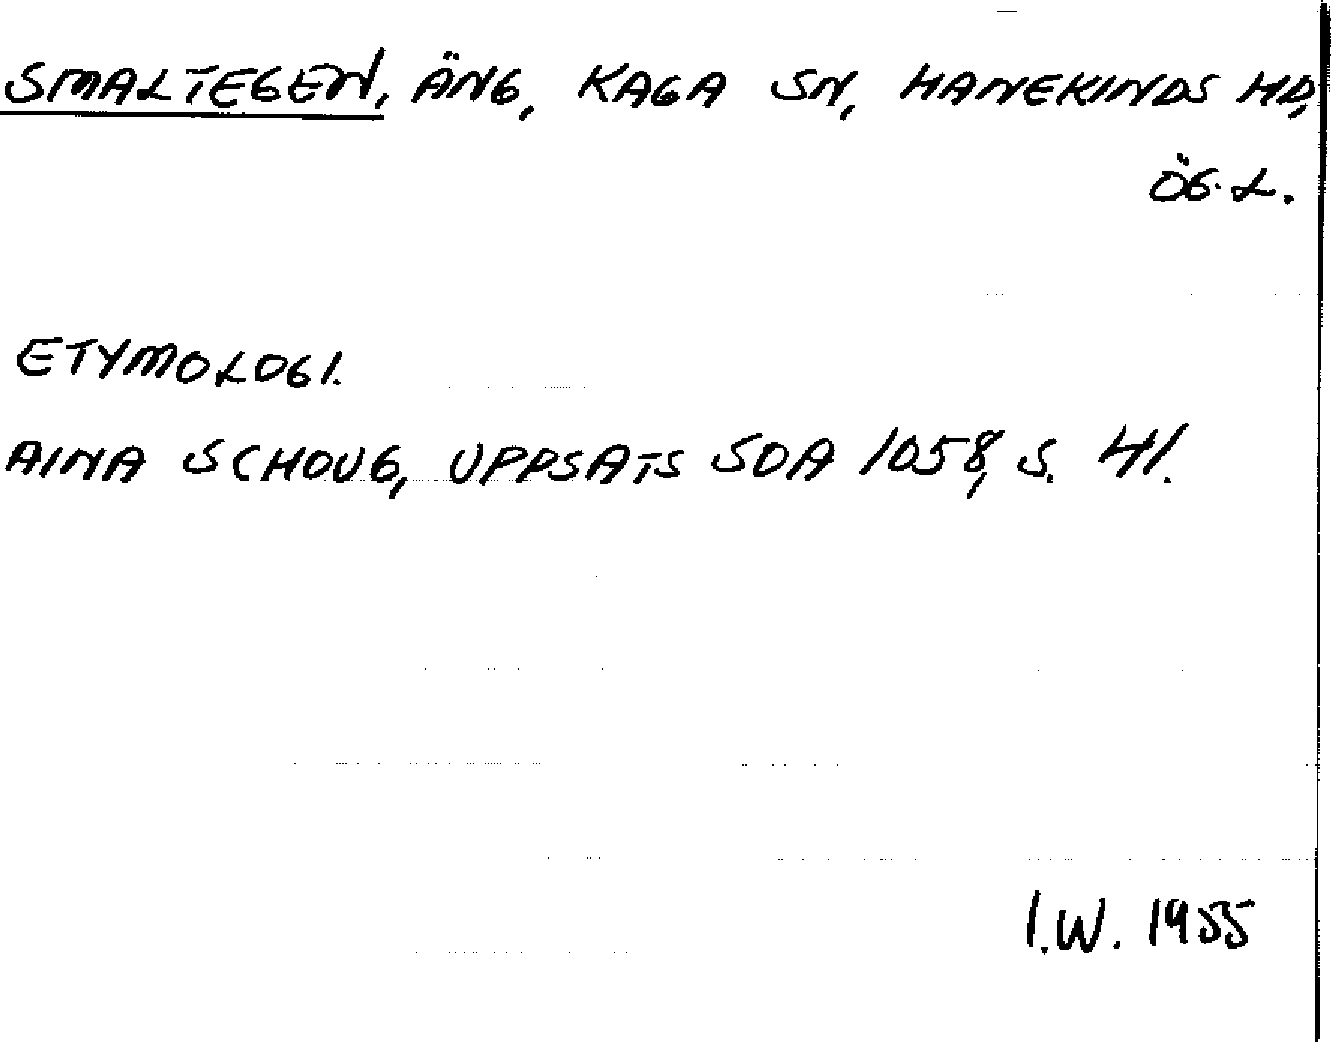 SMALTEGEN, ÄNG, KAGA SN, HANEKINDS HD,
ÖG. L.
ETYMOLOGI.
AINA SCHOUG, UPPSATS SOA 1058, S. 41.
I.W. 1955